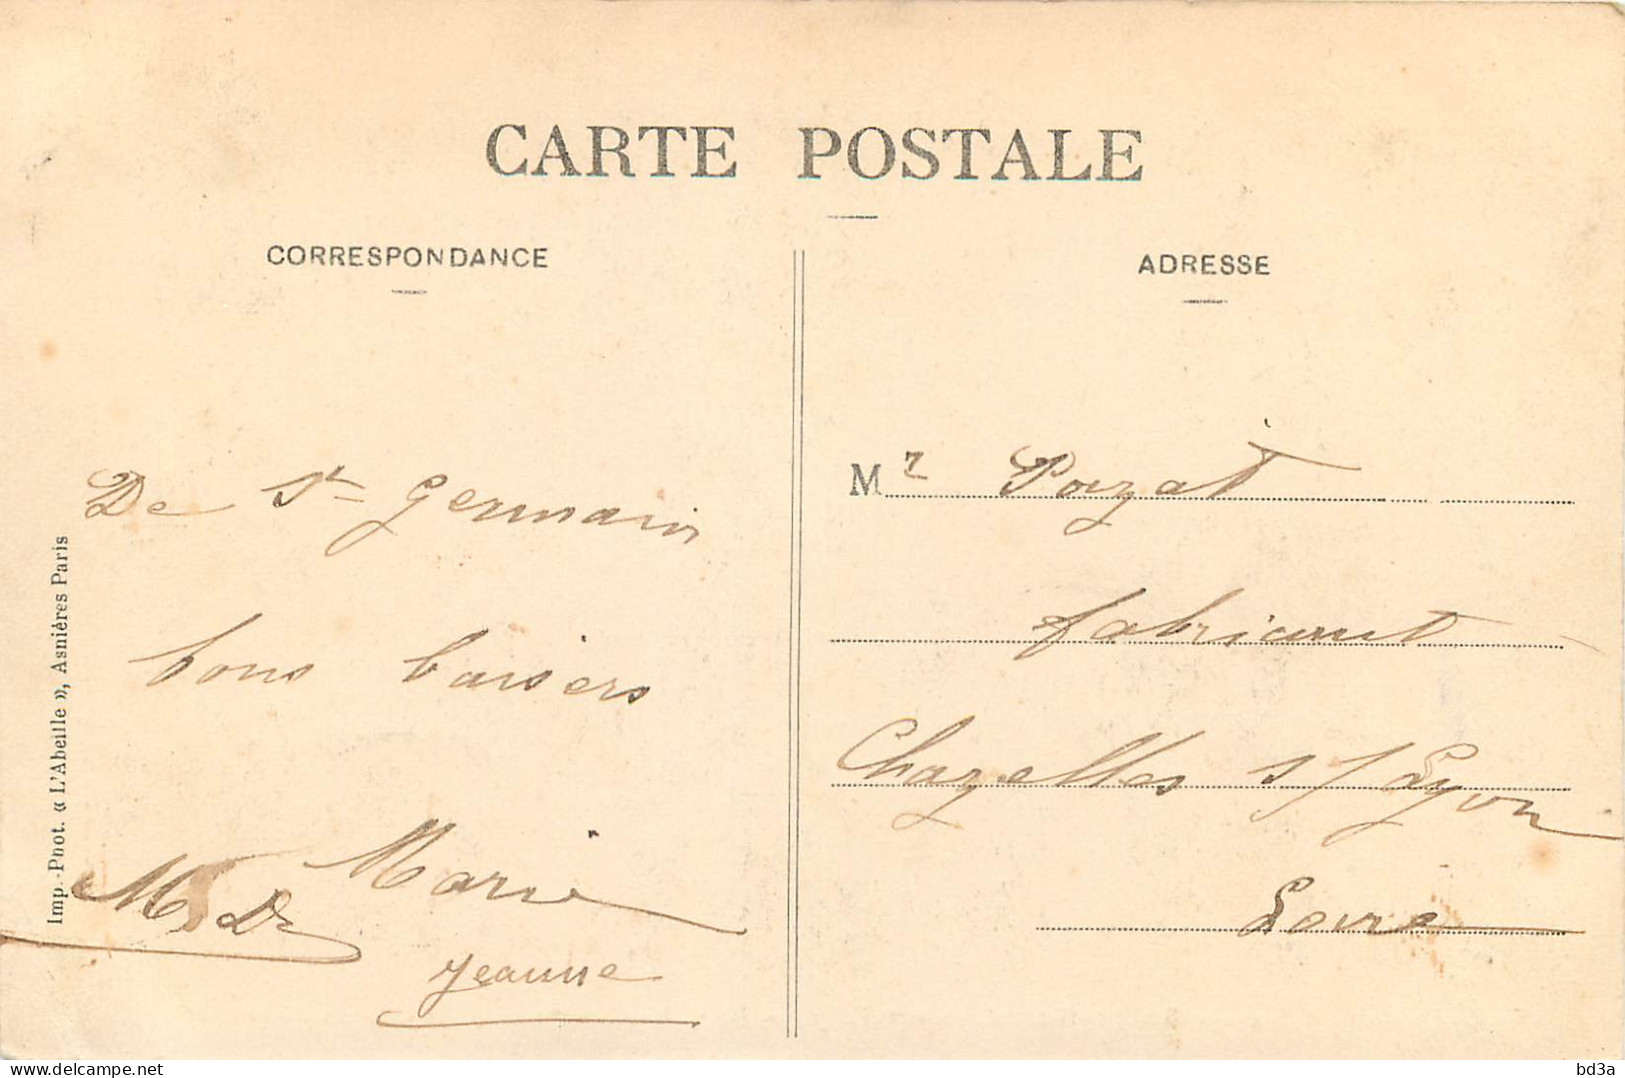 CARTE POSTALE
CORRESPONDANCE
De St Germain
bons baisers
Marie
Jeanne
Imp.-Phot. « L'Abeille », Asnières Paris
ADRESSE
Mr Poyzat
fabricant
Chazelles s/ Lyon
Loire
delcampe.net
bd3a